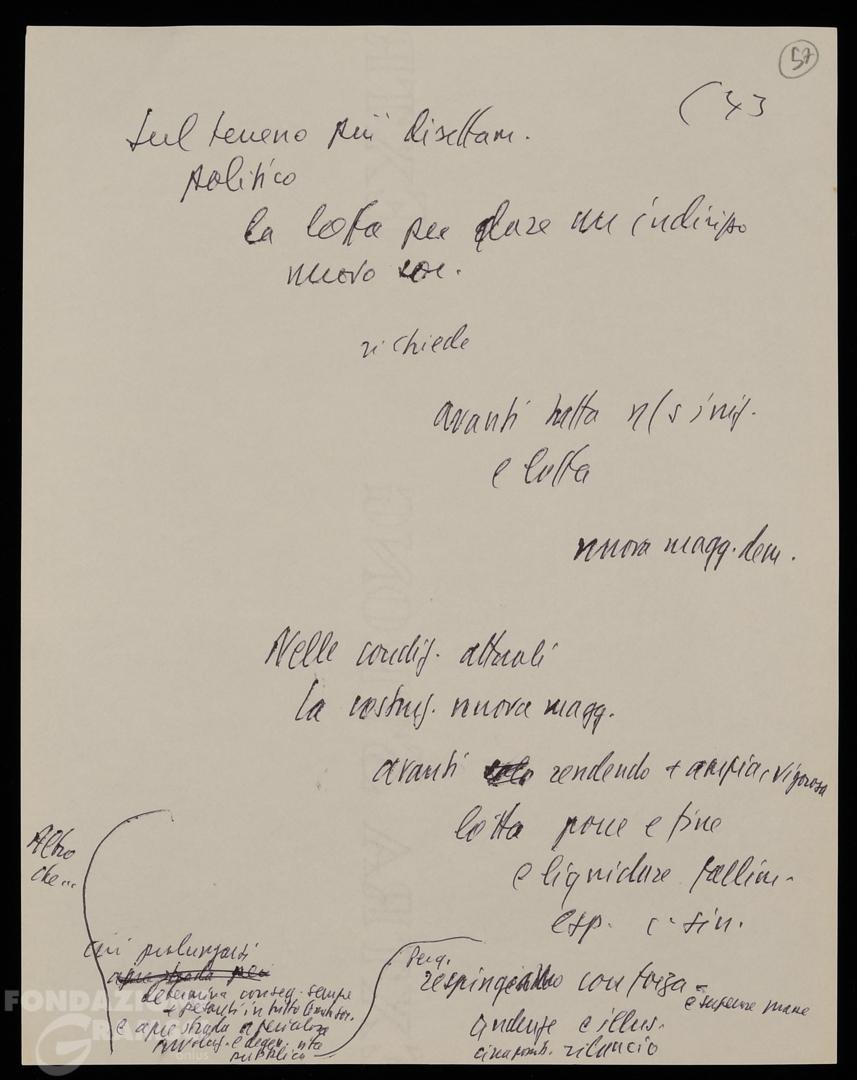 57
( 43
Sul terreno più direttam.
politico
la lotta per dare un indirizzo
nuovo
richiede
avanti tratta
e lotta
nuova magg. dem.
Nelle condiz. attuali
la costruz. nuova magg.
avanti rendendo + ampia, vigorosa
lotta porre fine
e liquidare fallim.
esp. c-sin.
Altro
che...
cui prolungarsi
apre strada per
determina conseg. sempre
+ pesanti in tutto
e apre strada a pericolose
involuz. e degen. vita
pubblica
Perciò
respingendo con forza
e superare
anche illus.
rilancio
FONDAZIONE
GRAMSCI
onlus